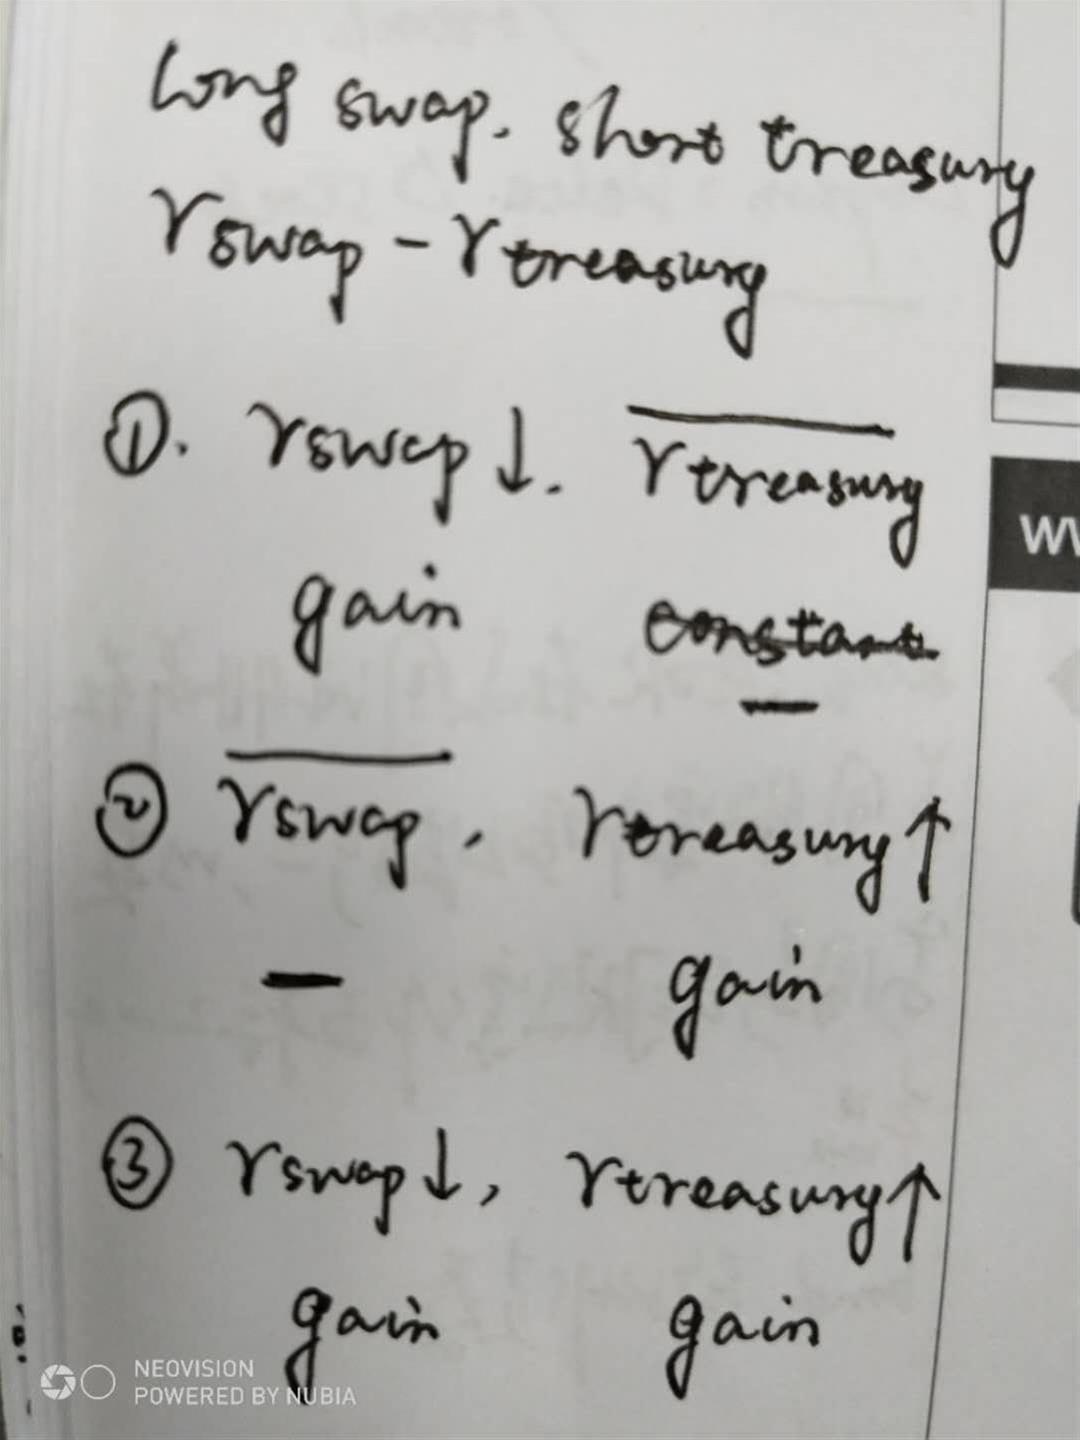 long swap. short treasury
rswap - rtreasury
①. rswap ↓. rtreasury
gain constant
—
② rswap, rtreasury ↑
— gain
③ rswap ↓, rtreasury ↑
gain gain
NEOVISION
POWERED BY NUBIA